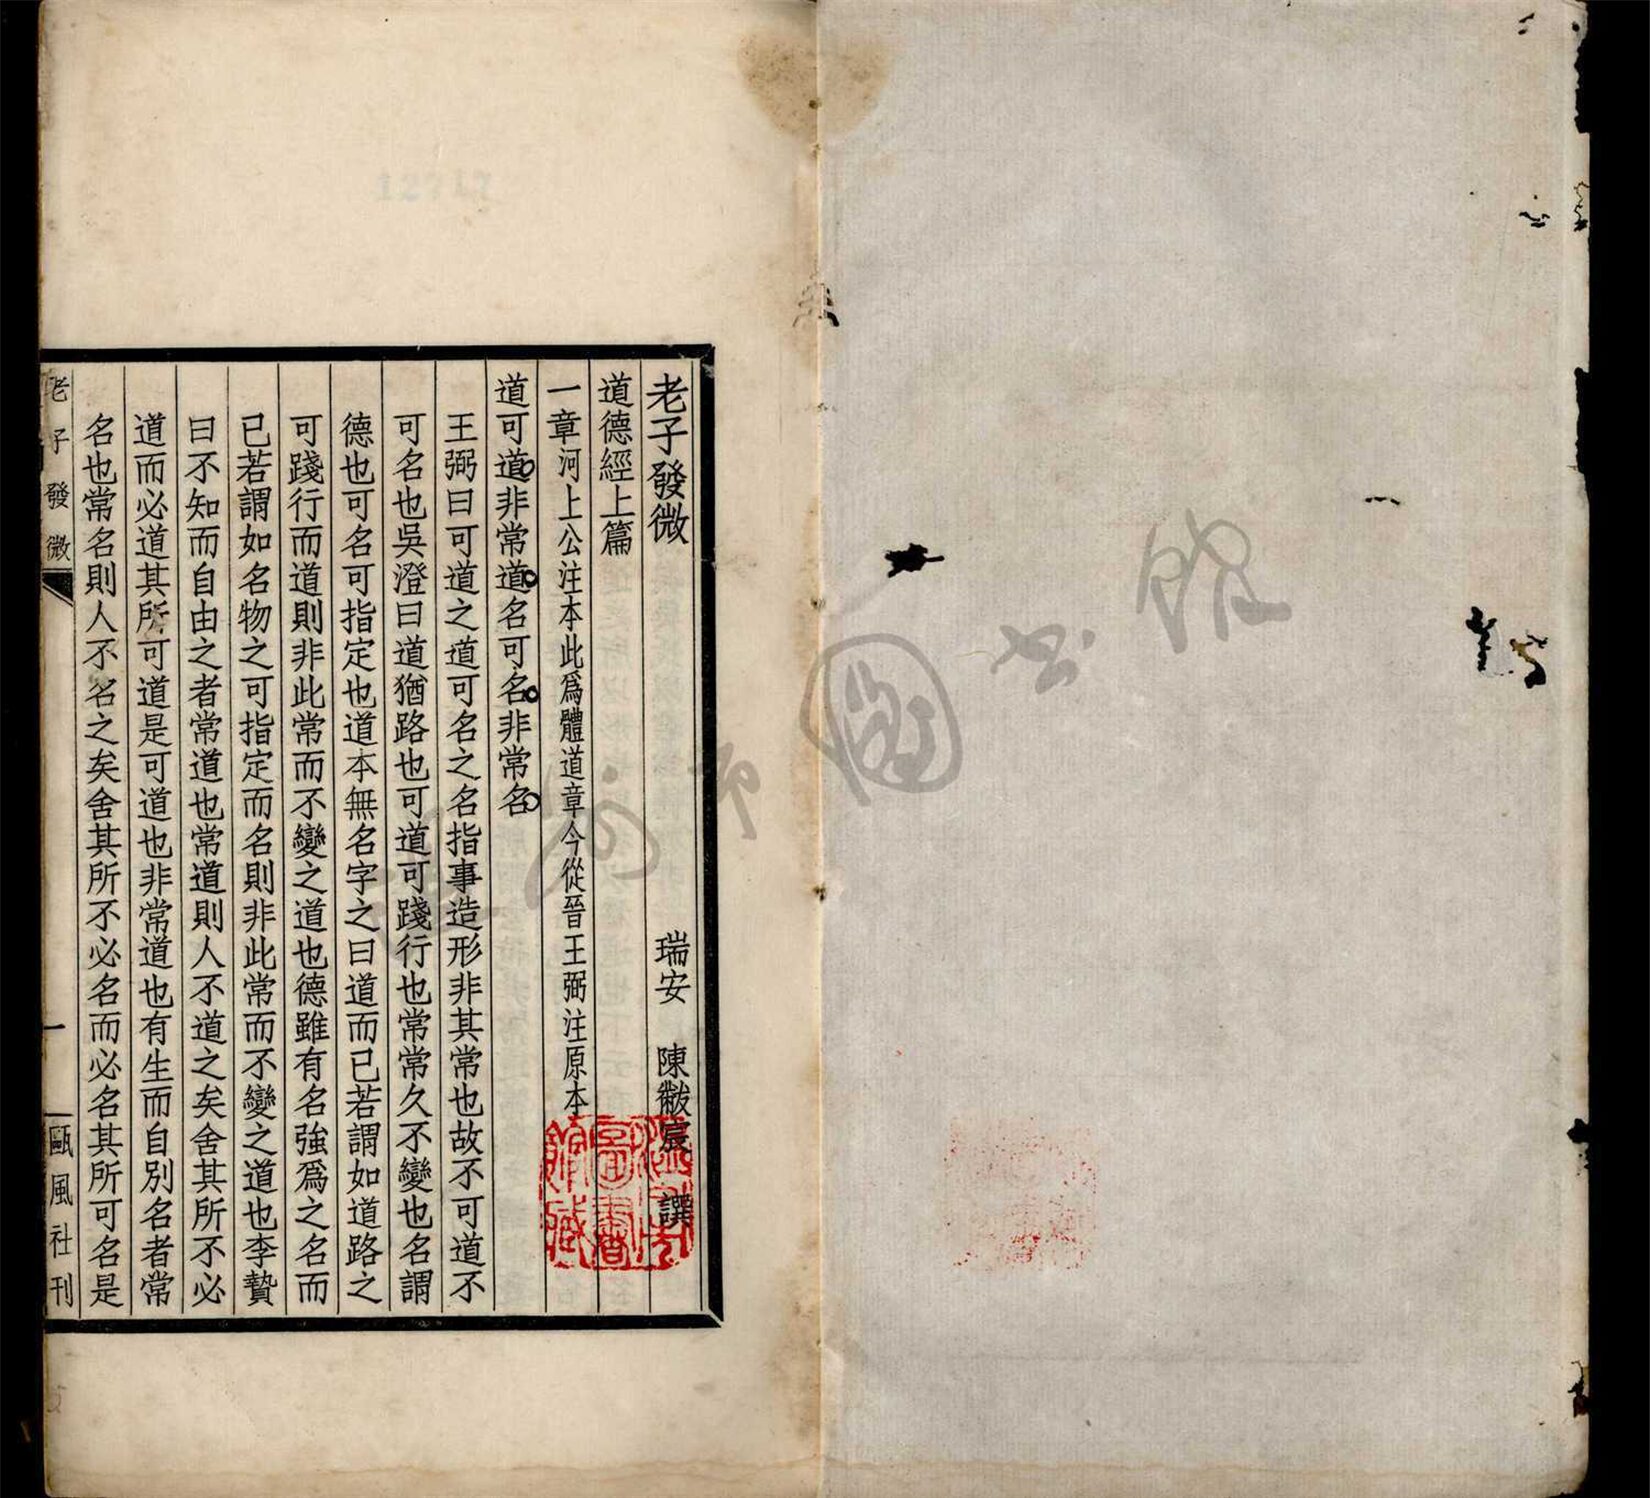 老子發微
瑞安 陳黻宸 譔
道德經上篇
一章河上公注本此爲體道章今從晉王弼注原本
道可道非常道名可名非常名
王弼曰可道之道可名之名指事造形非其常也故不可道不
可名也吳澄曰道猶路也可道可踐行也常常久不變也名謂
德也可名可指定也道本無名字之曰道而已若謂如道路之
可踐行而道則非此常而不變之道也德雖有名強爲之名而
已若謂如名物之可指定而名則非此常而不變之道也李贄
曰不知而自由之者常道也常道則人不道之矣舍其所不必
道而必道其所可道是可道也非常道也有生而自別名者常
名也常名則人不名之矣舍其所不必名而必名其所可名是
老子發微
一
甌風社刊
圖書
館藏
市圖書館
12717